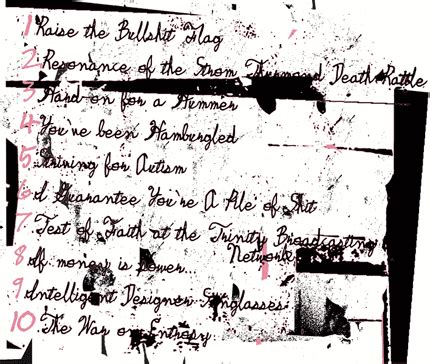 1 Raise the Bullshit Flag
2 Resonance of the Strom Thurmond Death Rattle
3 Hard-on for a Hummer
4 You've been Hamburgled
5 Striving for Autism
6 I Guarantee You're A Pile of Shit
7 Test of Faith at the Trinity Broadcasting
Network
8 If money is power...
9 Intelligent Designer Sunglasses
10 The War on Entropy